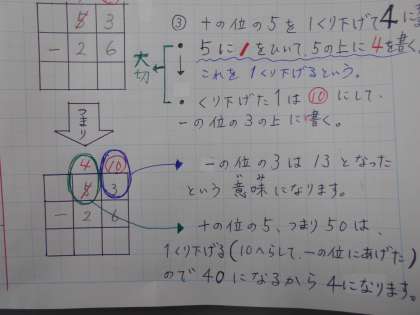 5 3
- 2 6
大切
③ 十の位の5を1くり下げて4にす
• 5に1をひいて、5の上に4を書く。
これを1くり下げるという。
• くり下げた1は⑩にして、
一の位の3の上に書く。
つまり
4 ⑩
5 3
- 2 6
一の位の3は13となった
という意味になります。
いみ
十の位の5、つまり50は、
1くり下げる(10へらして、一の位にあげた)
ので40になるから4になります。